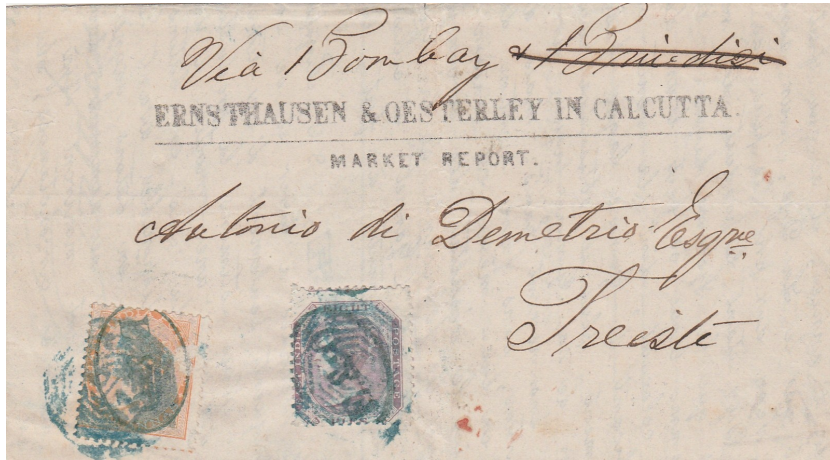 Via Bombay & Brindisi
ERNSTHAUSEN & OESTERLEY IN CALCUTTA.
MARKET REPORT.
Antonio di Demetrio Esqre
Trieste
EIGHT
POSTAGE